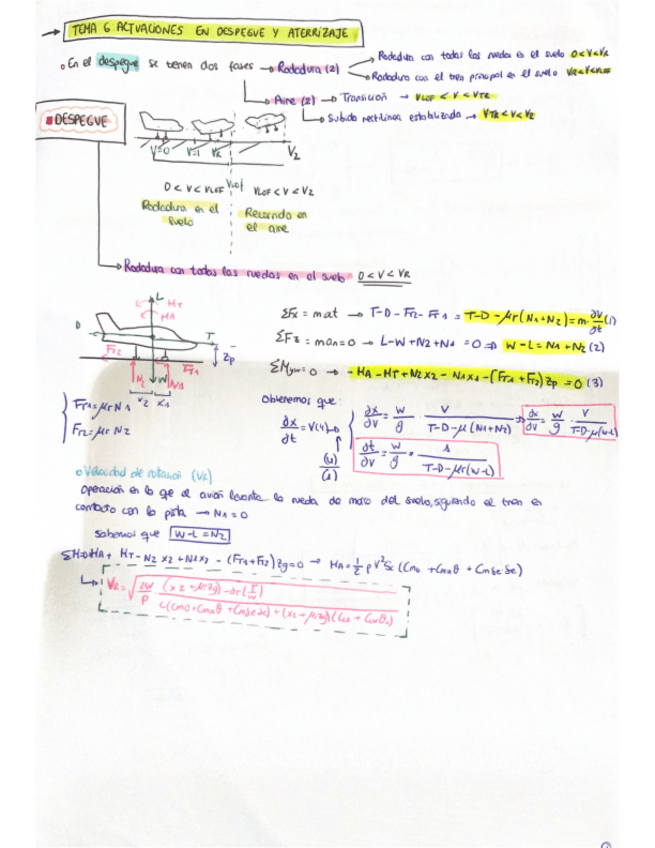 TEMA 6 ACTUACIONES EN DESPEGUE Y ATERRIZAJE
• En el despegue se tienen dos fases → Rodadura (2) → Rodadura con todas las ruedas en el suelo 0<V<VR
→ Rodadura con el tren principal en el suelo VR<V<VLOF
→ Aire (2) → Transición → VLOF < V < VTR
→ Subida rectilínea estabilizada → VTR < V < V2
DESPEGUE
V=0 V=1 VR V2
0 < V < VLOF VLOF VLOF < V < V2
Rodadura en el suelo
Recorrido en el aire
Rodadura con todas las ruedas en el suelo 0 < V < VR
L MT
MA
D T
FT2 FT1 Zp
N2 W N1
x2 x1
ΣFx = mat → T-D-FT2-FT1 = T-D-μr(N1+N2)=m·∂V/∂t (1)
ΣFz = man=0 → L-W+N2+N1 =0 ⇒ W-L=N1+N2 (2)
ΣMyw=0 → -MA-MT+N2X2-N1X1-(FT1+FT2)Zp =0 (3)
FT1=μr N1
FT2=μr N2
Obtenemos que:
∂x/∂t = V(4)
(4)/(1)
∂x/∂V = W/g · V/(T-D-μ(N1+N2)) ⇒ ∂x/∂V = W/g · V/(T-D-μ(W-L))
∂t/∂V = W/g · 1/(T-D-μr(W-L))
○ Velocidad de rotación (VR)
Operación en la que el avión levanta la rueda de morro del suelo, siguiendo el tren en
contacto con la pista → N1=0
Sabemos que W-L=N2
MT-N2 X2 +N1X1 - (FT1+FT2) Zg=0 → MA=½ρV²Sc (Cmo +Cmαθ + Cmδe δe)
VR=